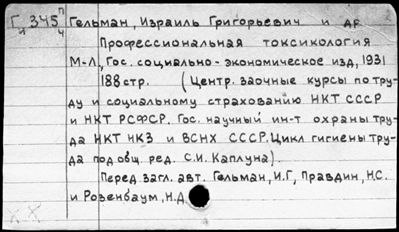 Г 345 п Гельман, Израиль Григорьевич и др
и ч Профессиональная токсикология
М-Л, Гос. социально-экономическое изд, 1931
188 стр. (Центр. заочные курсы по тру-
ду и социальному страхованию НКТ СССР
и НКТ РСФСР. Гос. научный ин-т охраны тру-
да НКТ НКЗ и ВСНХ СССР. Цикл гигиены тру-
да под общ. ред. С.И. Каплуна).
Перед загл. авт. Гельман, И.Г, Правдин, Н.С.
и Розенбаум, Н.Д.